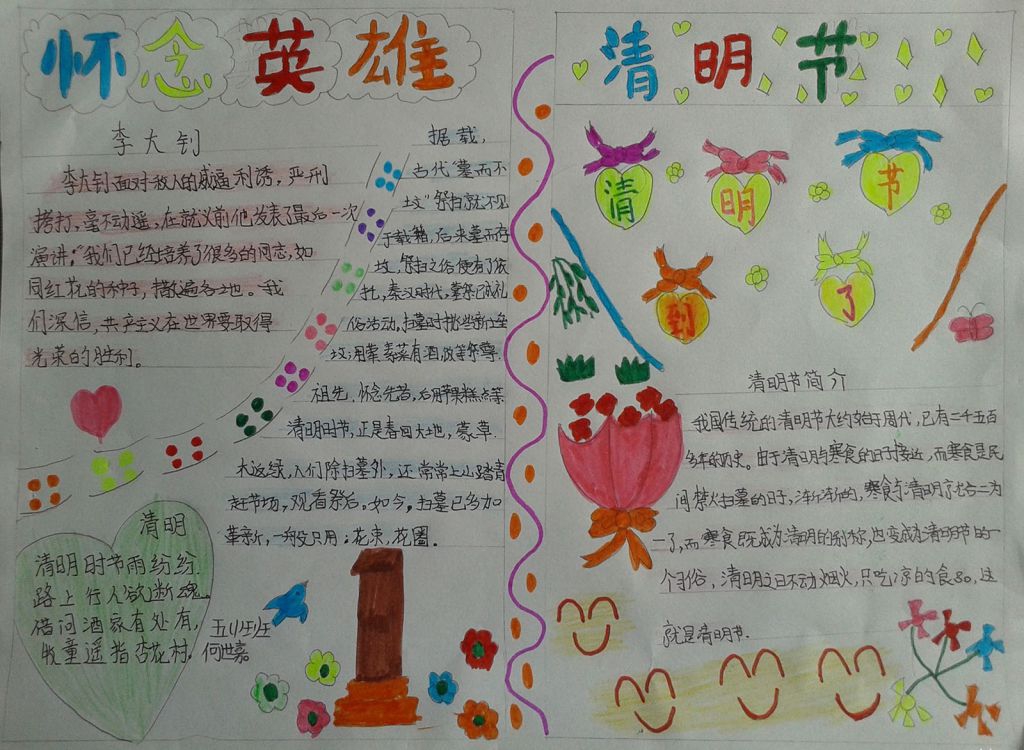 怀念英雄
李大钊
李大钊面对敌人的威逼利诱，严刑
拷打，毫不动遥，在就义前他发表了最后一次
演讲："我们已经培养了很多的同志，如
同红花的种子，撒遍各地。我
们深信，共产主义在世界要取得
光荣的胜利。
据载，
古代"墓而不
坟"祭扫就不见
于载籍，后来墓而有
坟，祭扫之俗便有了依
托，秦汉时代，墓祭已成礼
俗活动，扫墓时
坟，用荤素菜有酒
祖先，怀念先者，后用苹果糕点等
清明时节，正是春回大地，
大返绿，人们除扫墓外，还常常上山踏青
赶节场，观看祭后。如今，扫墓已多加
革新，一般只用：花束，花圈。
清明
清明时节雨纷纷
路上行人欲断魂
借问酒家有处有，
牧童遥指杏花村，
何世嘉
清明节
清明节
到了
清明节简介
我国传统的清明节大约始于周代，已有二千五百
多年的历史。由于清明与寒食的日子接近，而寒食是民
间禁火扫墓的日子，渐渐的，寒食与清明就合二为
一了，而寒食既成为清明的别称，也变成为清明节的一
个习俗，清明之日不动烟火，只吃凉的食品，这
就是清明节.